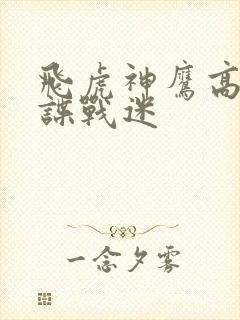 飛虎神鷹高
諜戰迷
一念夕雾